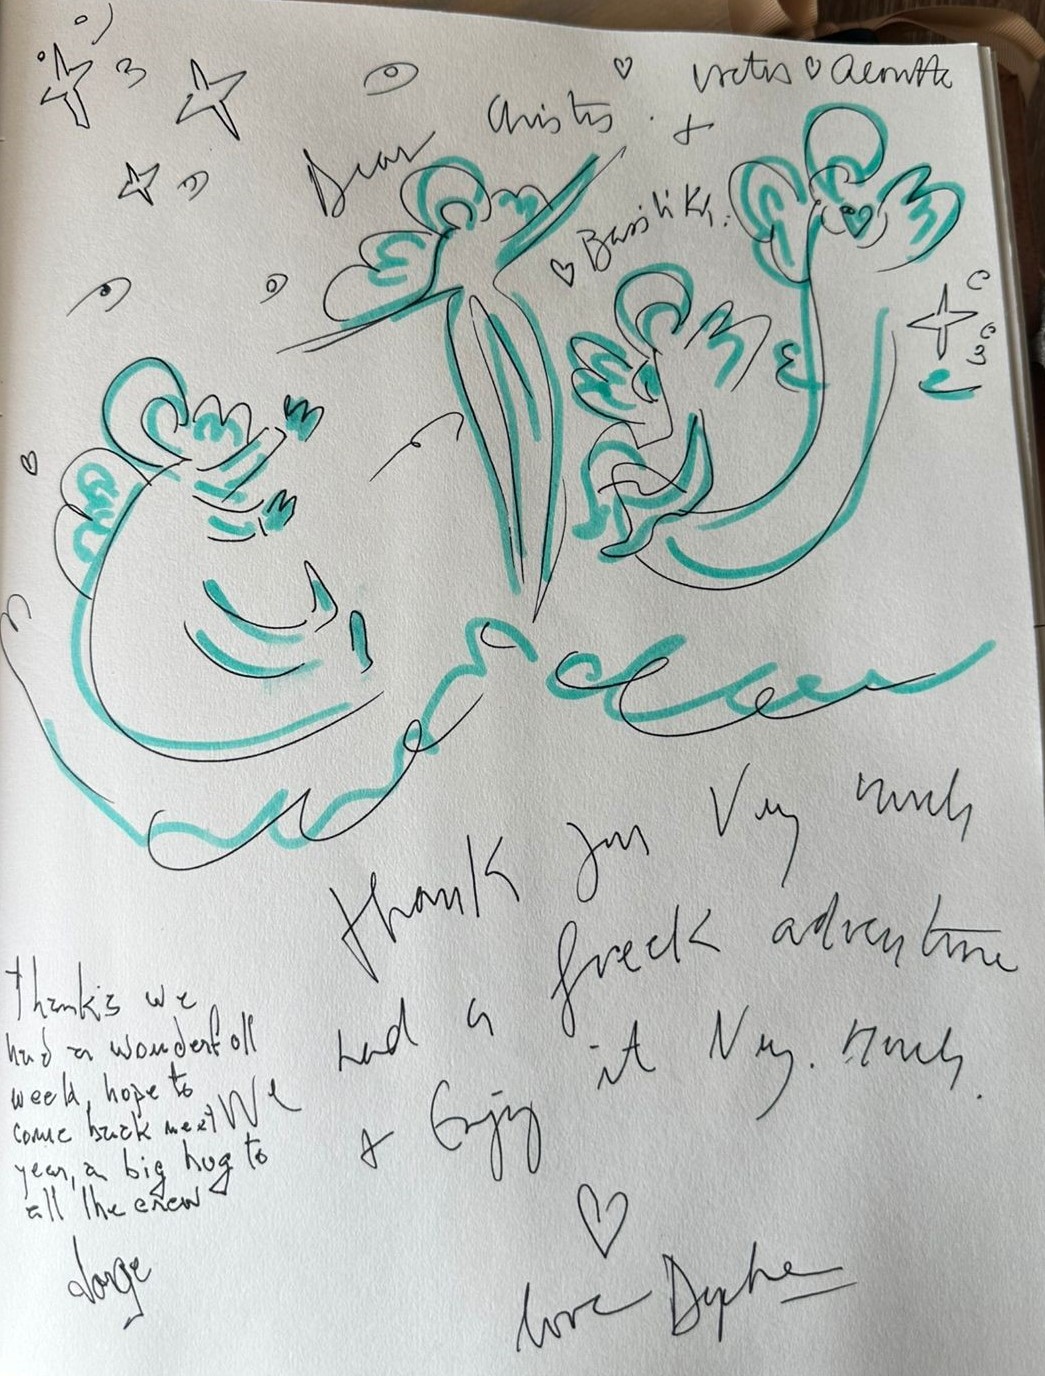 Dear Christos +
Basiliki
Thank you Very much
We had a greek adventure
+ Enjoy it Very. much.
love Daphne
Thanks we
had a wonderfoll
week, hope to
come back next
year, a big hug to
all the crew
Jorge